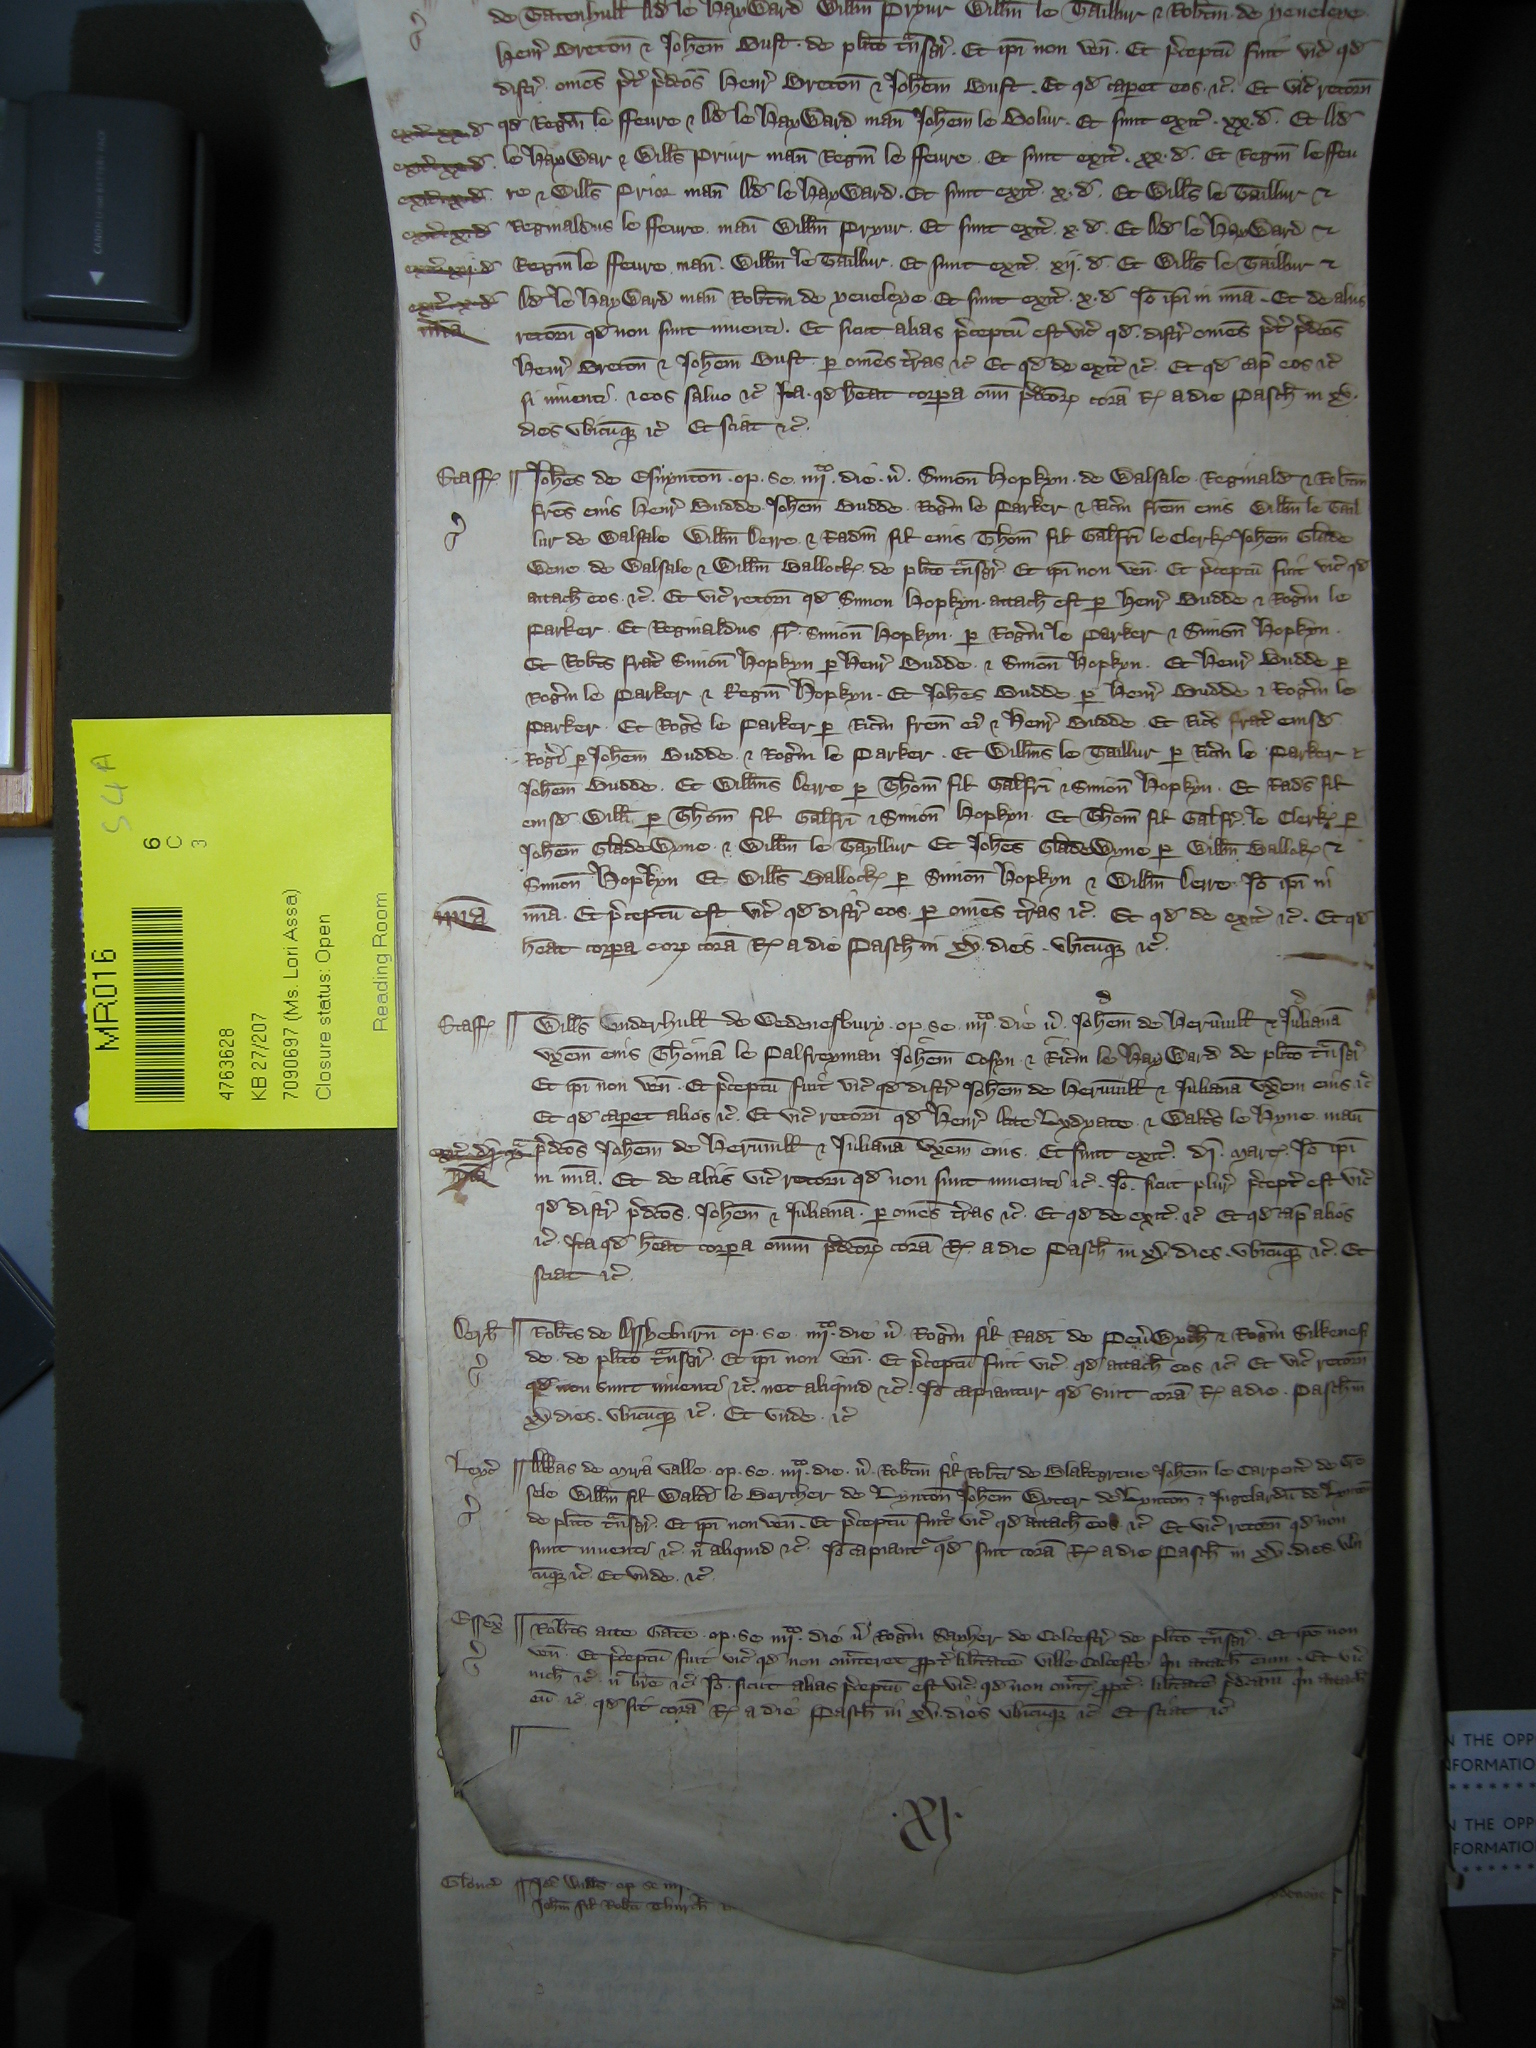 de Tatenhull Ad le HayWard Willm Pryur Willm le Taillur & Robtm de yeueleye
Henr Breton & Johem Bust . de plito tnsgr . Et ipi non ven . Et pceptu fuit vic qd
distr omes pt pdcos Henr Breton & Johem Bust . Et qd caperet eos ic . Et vic retorn
exit xx d qd Regin le ffeure & Ad le HayWard man Johem le Bolur . Et sunt exit . xx . d . Et Ad
exit xx d le HayWar & Wills Priur man Regin le ffeure . Et sunt exit . xx . d . Et Regin le ffeu
exit x d re & Wills Prior man Ad le HayWard . Et sunt exit . x . d . Et Wills le Taillur &
exit x d Reginaldus le ffeure man Willm Pryur . Et sunt exit . x . d . Et Ad le HayWard &
exit xij d Regin le ffeure man Willm le Taillur . Et sunt exit . xij . d . Et Wills le Taillur &
exit x d Ad le HayWard man Robtm de yeueleye . Et sunt exit . x . d Io ipi in mia . Et de aliis
mia retorn qd non sunt inuenti . Et sicut alias pceptu est vic qd . distr omes pt pdcos
Henr Breton & Johem Bust . p omes tras ic Et qd de exit ic . Et qd cap eos ic
si inuenti . & eos saluo ic Ita . qd heat corpora oim pdcor cora R a die Pasch in xv .
dies vbicuq ic Et sciat & c .
Staff Johes de Esynton . op . se . iiijto . die . v . Simon Hopkyn . de Walsale . Reginald & Robtm
fres eius Henr Budde . Johem Budde . Rogm le Parker & Ricm frem eius Willm le Tail
lur de Walsale Willm Derre & Radm fil eius Thom fil Galfri le Clerk Johem Glade
Wene de Walsale & Willm Ballock . de plito tnsgr Et ipi non ven . Et pceptu fuit vic qd
attach eos . ic . Et vic retorn qd Simon Hopkyn . attach est p Henr Budde & Rogm le
Parker . Et Reginaldus fr Simon Hopkyn . p Rogm le Parker & Simon Hopkyn .
Et Robts frat Simon Hopkyn p Henr Budde . & Simon Hopkyn . Et Henr Budde p
Rogm le Parker & Regin Hopkyn . Et Johes Budde p Henr Budde & Rogm le
Parker . Et Rogs le Parker p Ricm frem ei & Henr Budde . Et Rics frat eiusd
Rogi p Johem Budde & Rogm le Parker . Et Willms le Taillur p Ricm le Parker &
Johem Budde . Et Willms Derre p Thom fil Galfri & Simon Hopkyn . Et Rads fil
eiusd Willi p Thom fil Galfri & Simon Hopkyn . Et Thom fil Galfr le Clerk p
Johem GladeWyne . & Willm le Tayllur Et Johes GladeWyne p Willm Ballok &
Simon Hopkyn Et Wills Ballock p Simon Hopkyn & Willm Derre . Io ipi in
mia mia . Et pceptu est vic qd distr eos . p omes tras ic . Et qd de exit ic . Et qd
heat corpora eor cora R a die Pasch in xv . dies . vbicuq ic .
Staff Wills Underhull de Wedenesbury . op . se . iiijto . die v . Johem de Heruuill & Juliana
vxem eius Thoma le Palfreyman Johem Cosyn & Ricm le HayWard de plito tnsgr
Et ipi non ven . Et pceptu fuit vic qd distr Johem de Heruuill & Juliana vxem eius ic
Et qd caperet alios ic . Et vic retorn qd Henr atte Lydyate & Walts le Hyne man
exit di mr pdcos Johem de Heruuill & Juliana vxem eius . Et sunt exit . di . marc . Io ipi
mia in mia . Et de aliis vic retorn qd non sunt inuenti ic . Io . sicut plur pcept est vic
qd distr pdcos . Johem & Juliana . p omes tras ic . Et qd de exit ic Et qd cap alios
ic . Ita qd heat corpora omniu pdcor cora R a die Pasch in xv dies . vbicuq ic . Et
sciat ic .
Derb Robts de Assheburn op . se . iiijto . die v . Rogm fil Radi de PenWych & Rogm Silkenes
de . de plito tnsgr . Et ipi non ven . Et pceptu fuit vic qd attach eos ic Et vic retorn
qd non sunt inuenti ic . nec aliquid ic . Io capiantur qd sint cora R a die . Pasch in
xv dies . vbicuq ic . Et vnde . ic
Leyc Abbas de Mira valle . op . se . iiijto . die . v . Robtm fil Robti de Blakegreue Johem le Carpent de
sele Willm fil Waldi le Bercher de Lynton Johem Wyter de Lynton & Ingelardu de Lynt
de plito tnsgr . Et ipi non ven . Et pceptu fuit vic qd attach eos ic Et vic retorn qd non
sunt inuenti ic . n aliquid ic . Io capiant qd sint cora R a die Pasch in xv . dies . vbi
cuq ic . Et vnde . ic .
Essex Robts atte Gate . op . se . iiijto . die v Rogm Sayher de Colcestr de plito tnsgr . Et ipe non
ven . Et pceptu fuit vic qd non omitteret ppt libtatem ville Colcestr qn attach eum . Et vic
nich ic . n bre ic . Io . sicut alias pceptu est vic qd non omitt ppt libtate pdcam qn attach
eu ic . qd sit cora R a die Pasch in xv . dies vbicuq ic Et sciat ic
. XJ .
Glouc Ide Wills op se iiij
Johem fil Robti
MR016
6
C
3
S4A
4763628
KB 27/207
7090697 (Ms. Lori Assa)
Closure status: Open
Reading Room
CANON
N THE OPP
NFORMATIO
N THE OPP
FORMATIO